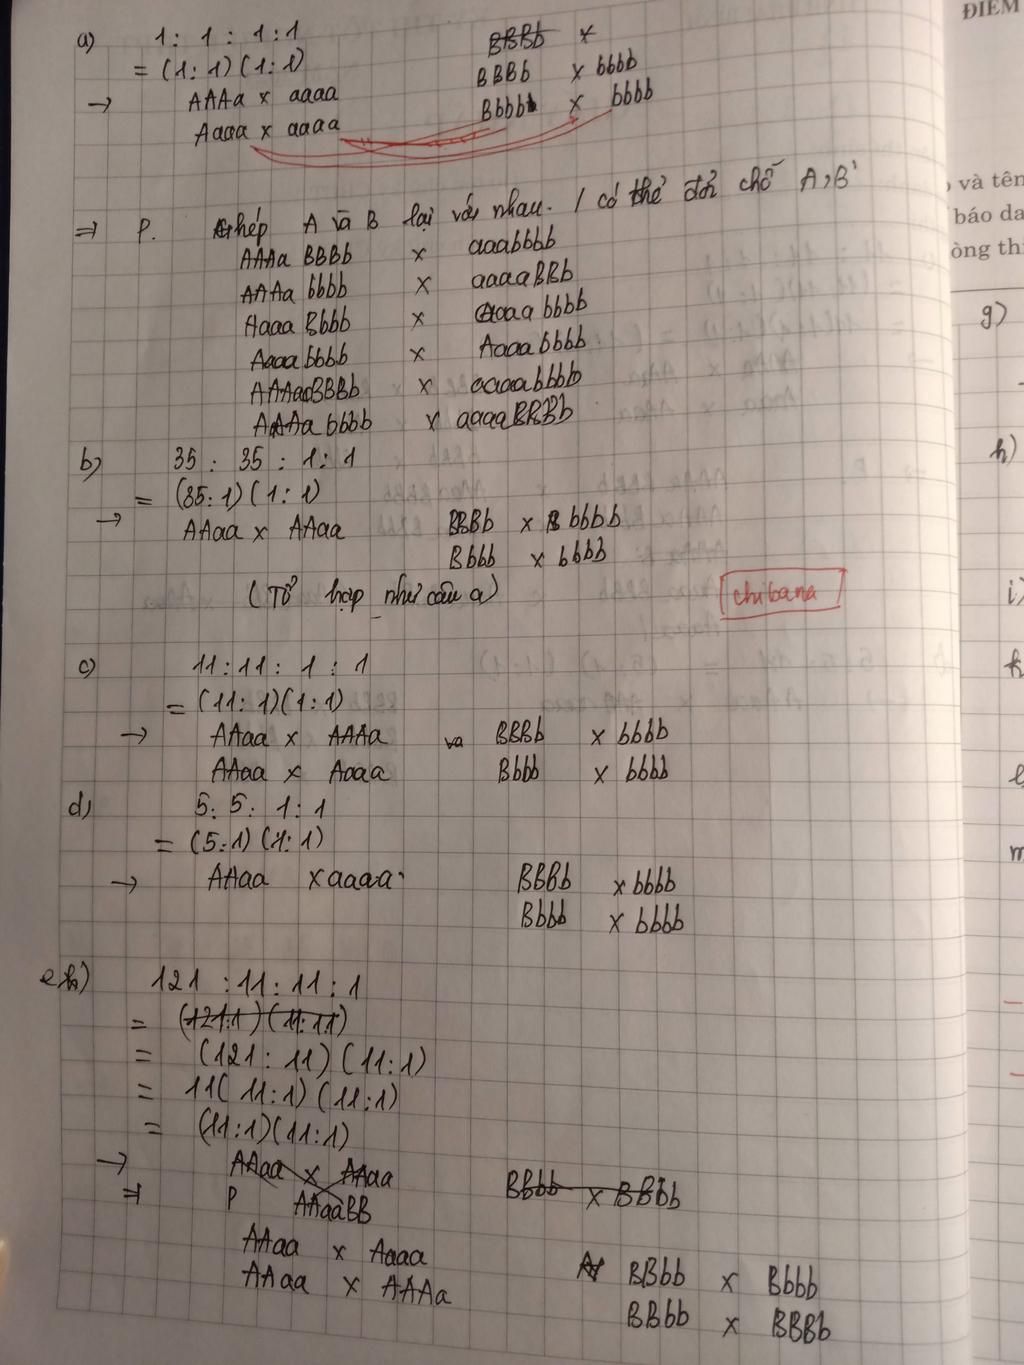 ĐIỂM
a) 1 : 1 : 1 : 1
= (1 : 1) (1 : 1)
BBBb x
→ AAAa x aaaa BBBb x bbbb
Aaaa x aaaa Bbbb x bbbb
⇒ P. ghép A và B lại với nhau. / có thể đổi chỗ A, B
AAAa BBBb x aaabbbb
AAAa bbbb x aaaaBBb
Aaaa Bbbb x aaaa bbbb
Aaaa bbbb x Aaaa bbbb
AAAaBBBb x aaaabbbb
AAAa bbbb x aaaaBBBb
b) 35 : 35 : 1 : 1
= (35 : 1) (1 : 1)
→ AAaa x AAaa BBBb x bbbb
Bbbb x bbbb
(Tổ hợp như câu a)
chibana
c) 11 : 11 : 1 : 1
= (11 : 1) (1 : 1)
→ AAaa x AAAa va BBBb x bbbb
AAaa x Aaaa Bbbb x bbbb
d) 5 : 5 : 1 : 1
= (5 : 1) (1 : 1)
→ AAaa x aaaa BBBb x bbbb
Bbbb x bbbb
e) 121 : 11 : 11 : 1
= (121:1) (11:11)
= (121 : 11) (11 : 1)
= 11(11 : 1) (11 : 1)
= (11 : 1) (11 : 1)
→ AAaa x AAaa BBbb x BBBb
⇒ P AAaaBB
AAaa x Aaaa BBbb x Bbbb
AAaa x AAAa BBbb x BBBb
và tên
báo da
òng thi
g)
h)
i)
k
l
m